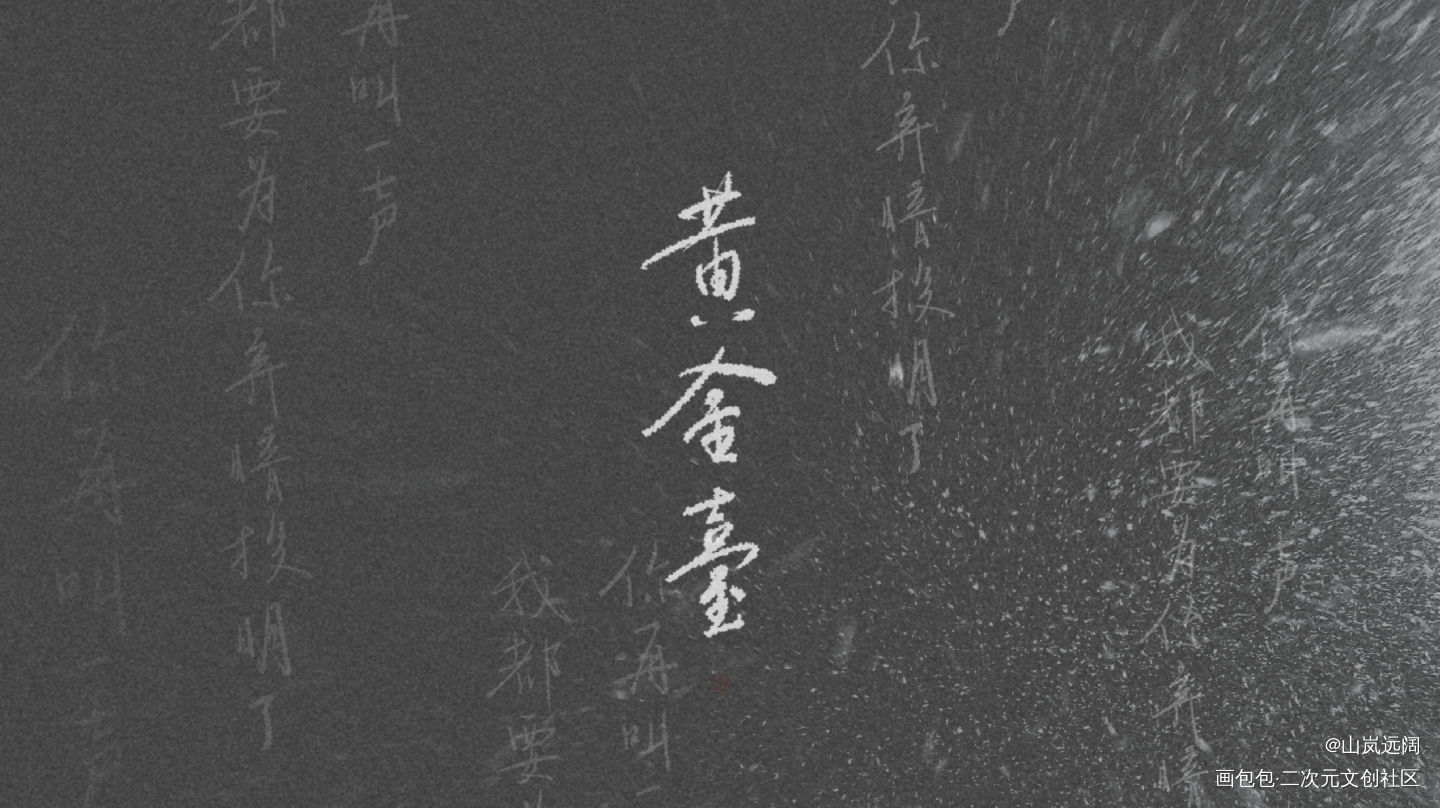 黄金臺
你再叫一声
我都要为你弃暗投明了
再叫一声
都要为你弃暗投明了
你弃暗投明了
你再叫一声
我都要为你弃暗
你再叫
我都要
@山岚远阔
画包包·二次元文创社区